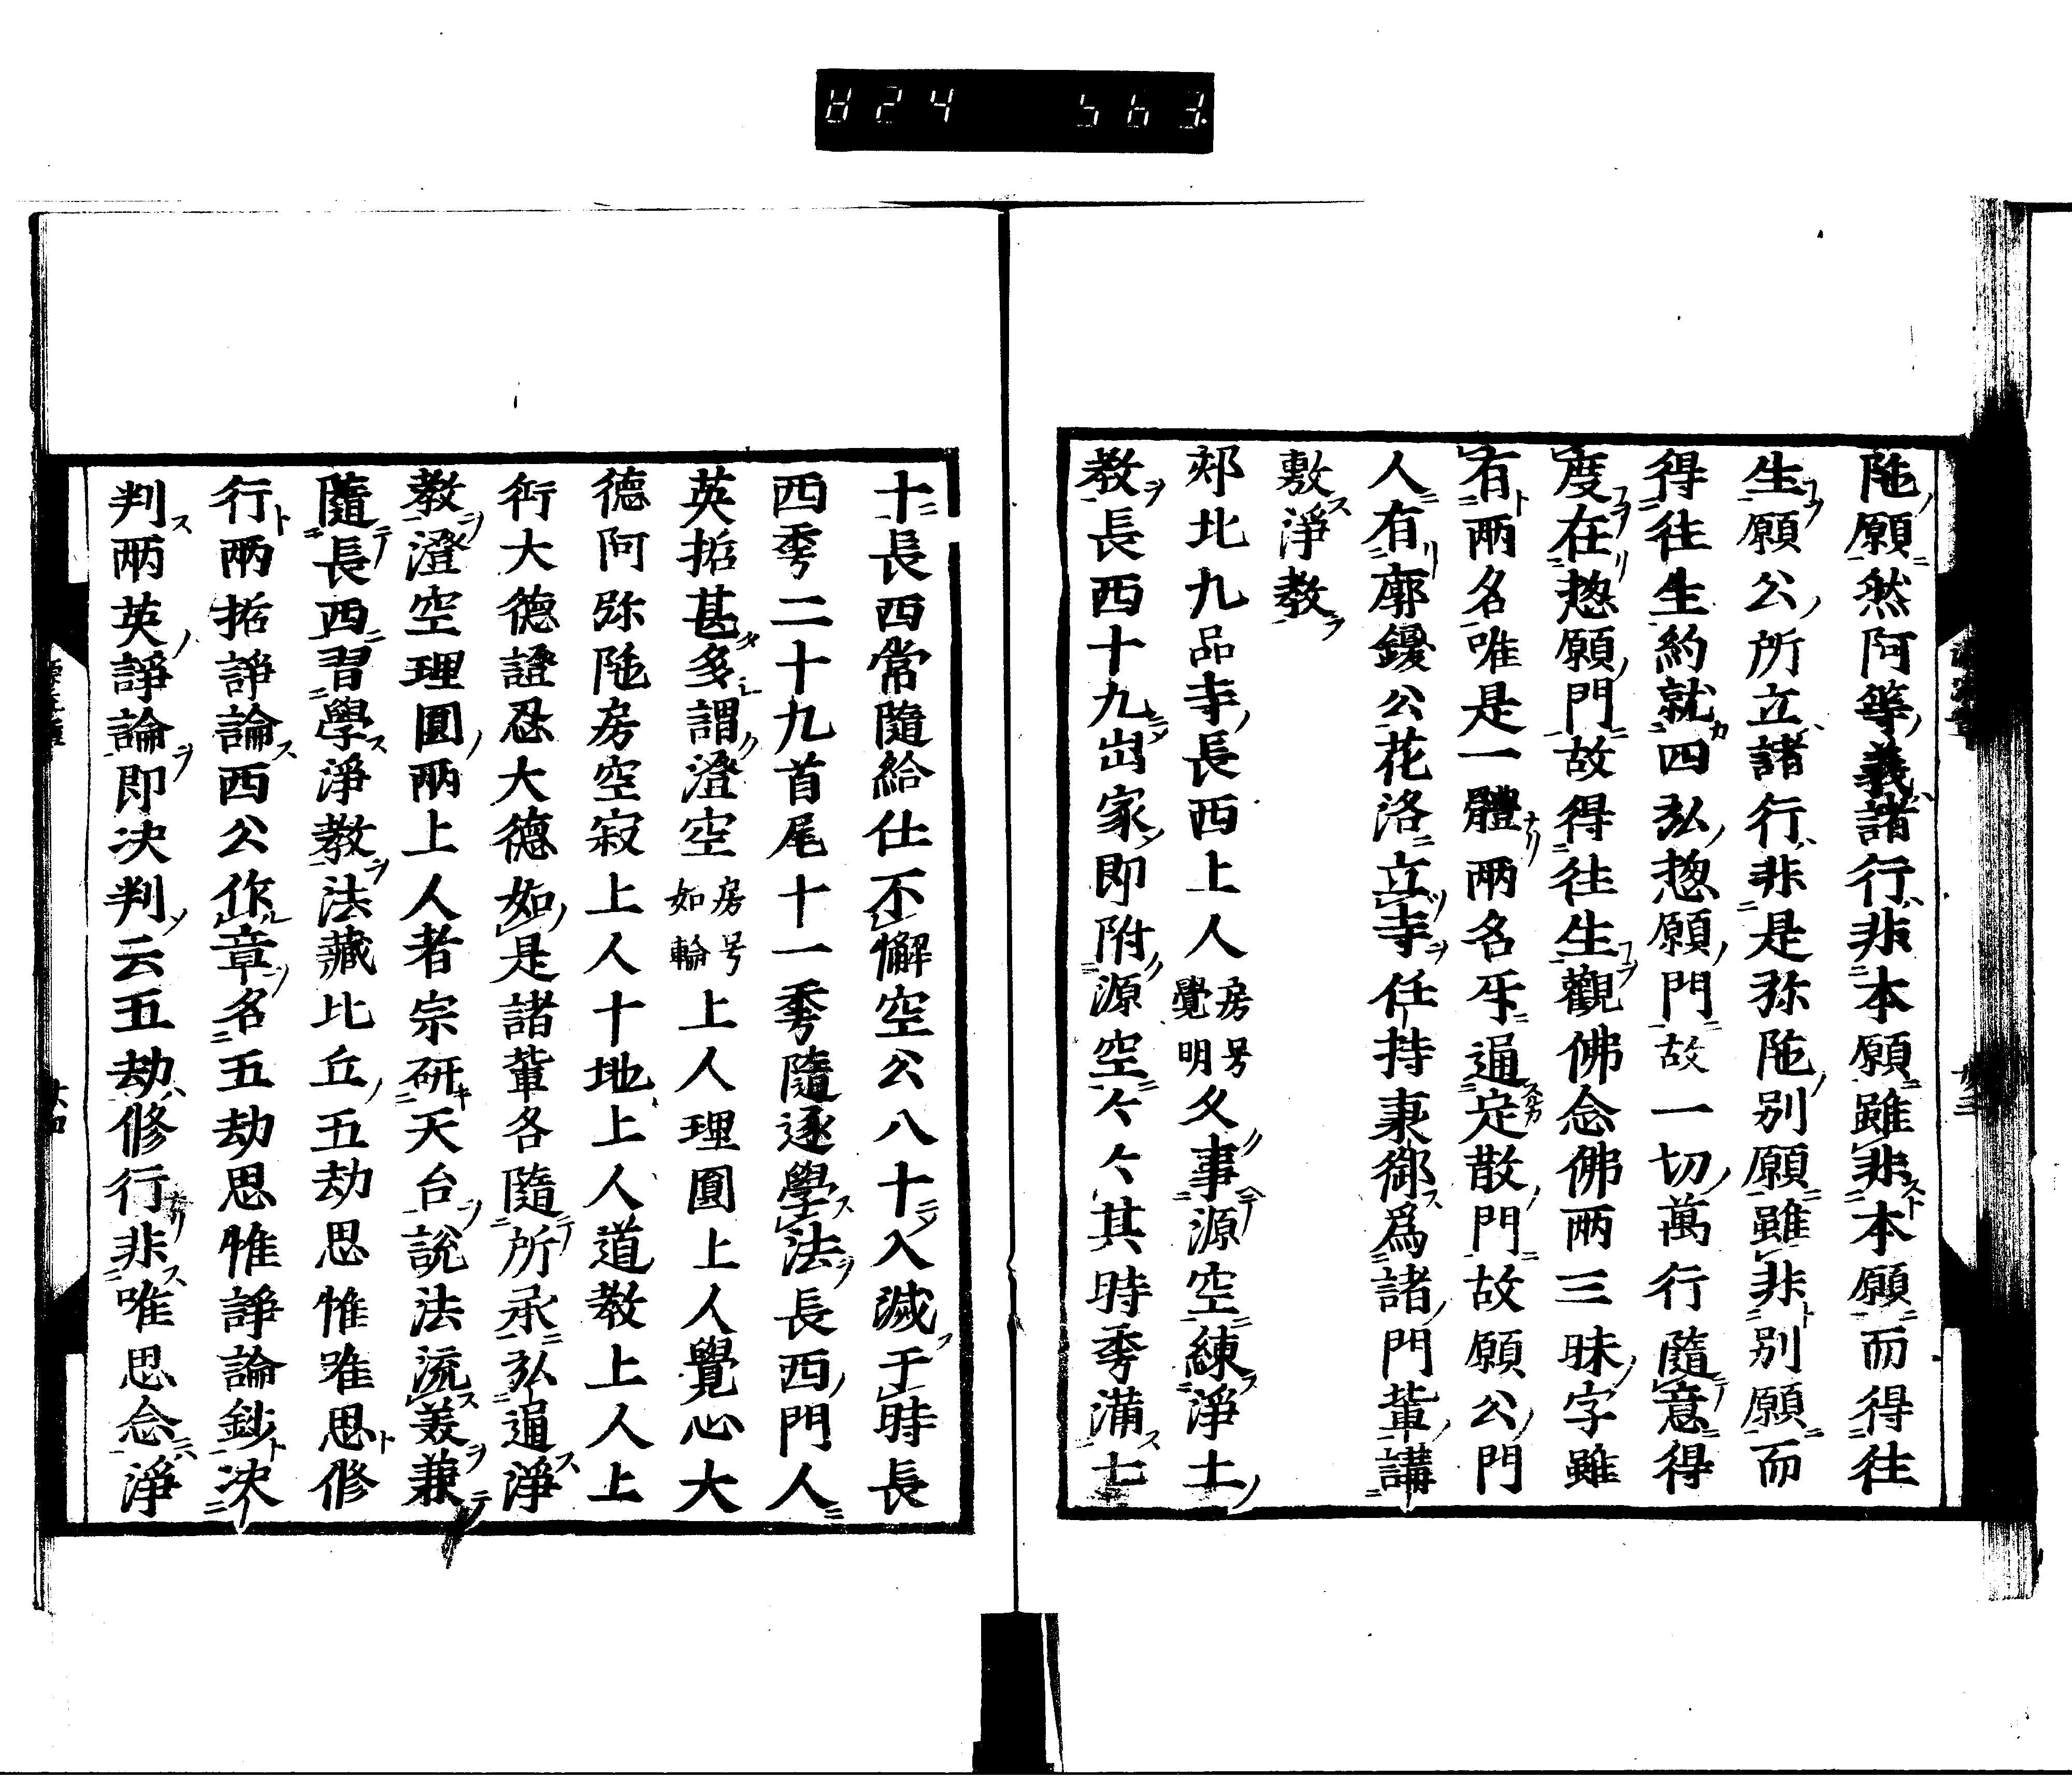 824 563
陁願然阿等義諸行非本願雖非本願而得往
生願公所立諸行非是弥陁別願雖非別願而
得往生約就四弘惣願門故一切萬行隨意得
度在惣願門故得往生觀佛念佛兩三昧字雖
有兩名唯是一體兩名互通定散門故願公門
人有廓鑁公花洛立寺任持秉御爲諸門輩講
敷淨教
郊北九品寺長西上人房号覺明久事源空練淨土
教長西十九出家即附源空々々其時季滿七
十長西常隨給仕不懈空公八十入滅于時長
西季二十九首尾十一季隨逐學法長西門人
英拓甚多謂澄空房号如輪上人理圓上人覺心大
德阿弥陁房空寂上人十地上人道教上人上
衍大德證忍大德如是諸輩各隨所承弘通淨
教澄空理圓兩上人者宗研天台說法流美兼
隨長西習學淨教法藏比丘五劫思惟唯思修
行兩拓諍論西公作章名五劫思惟諍論鈔决
判兩英諍論即决判云五劫修行非唯思念淨